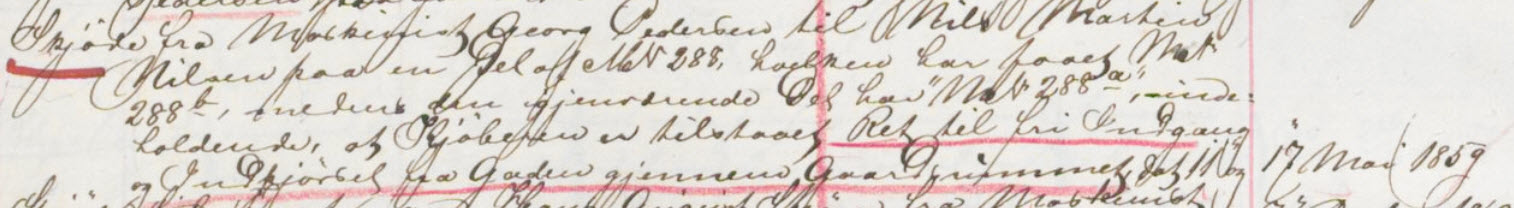 Skjøde fra Maskinist Georg Pedersen til Nils Martin
Nilsen paa en Del af MN 288, hvilken har faaet MatN
288b, medens den gjenværende Del har "MatN 288a", inde-
holdende, at Kjøberen er tilstaaet Ret til fri Indgang
og Indkjørsel fra Gaden gjennem Gaardsrummet, dat 11 og
17 Mai 1859
fra Maskinist